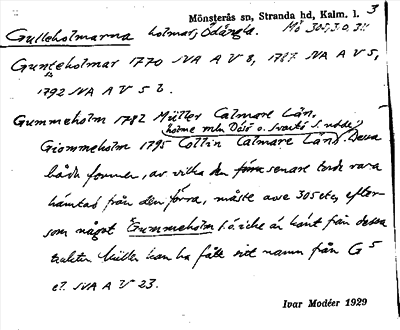 Mönsterås sn, Stranda hd, Kalm. l. 3
Gulleholmarna holmar, Ödängla. Mö 305, 3.0, 3
Gunteholmar 1770 JVA A V 8, 1787 JVA A V 5,
1792 JVA A V 5 2.
Gummeholm 1782 Müller Calmare Län,
holme mln Dösö o. Svartö S. udde
Giommeholm 1795 Collin Calmare Länd. Dessa
båda former, av vilka den senare torde vara
hämtad från den förra, måste avse 305 etc, efter-
som något Gummeholm f.ö. icke är känt från dessa
trakter. Müller kan ha fått sitt namn från G 5
el. JVA A V 23.
Ivar Modéer 1929